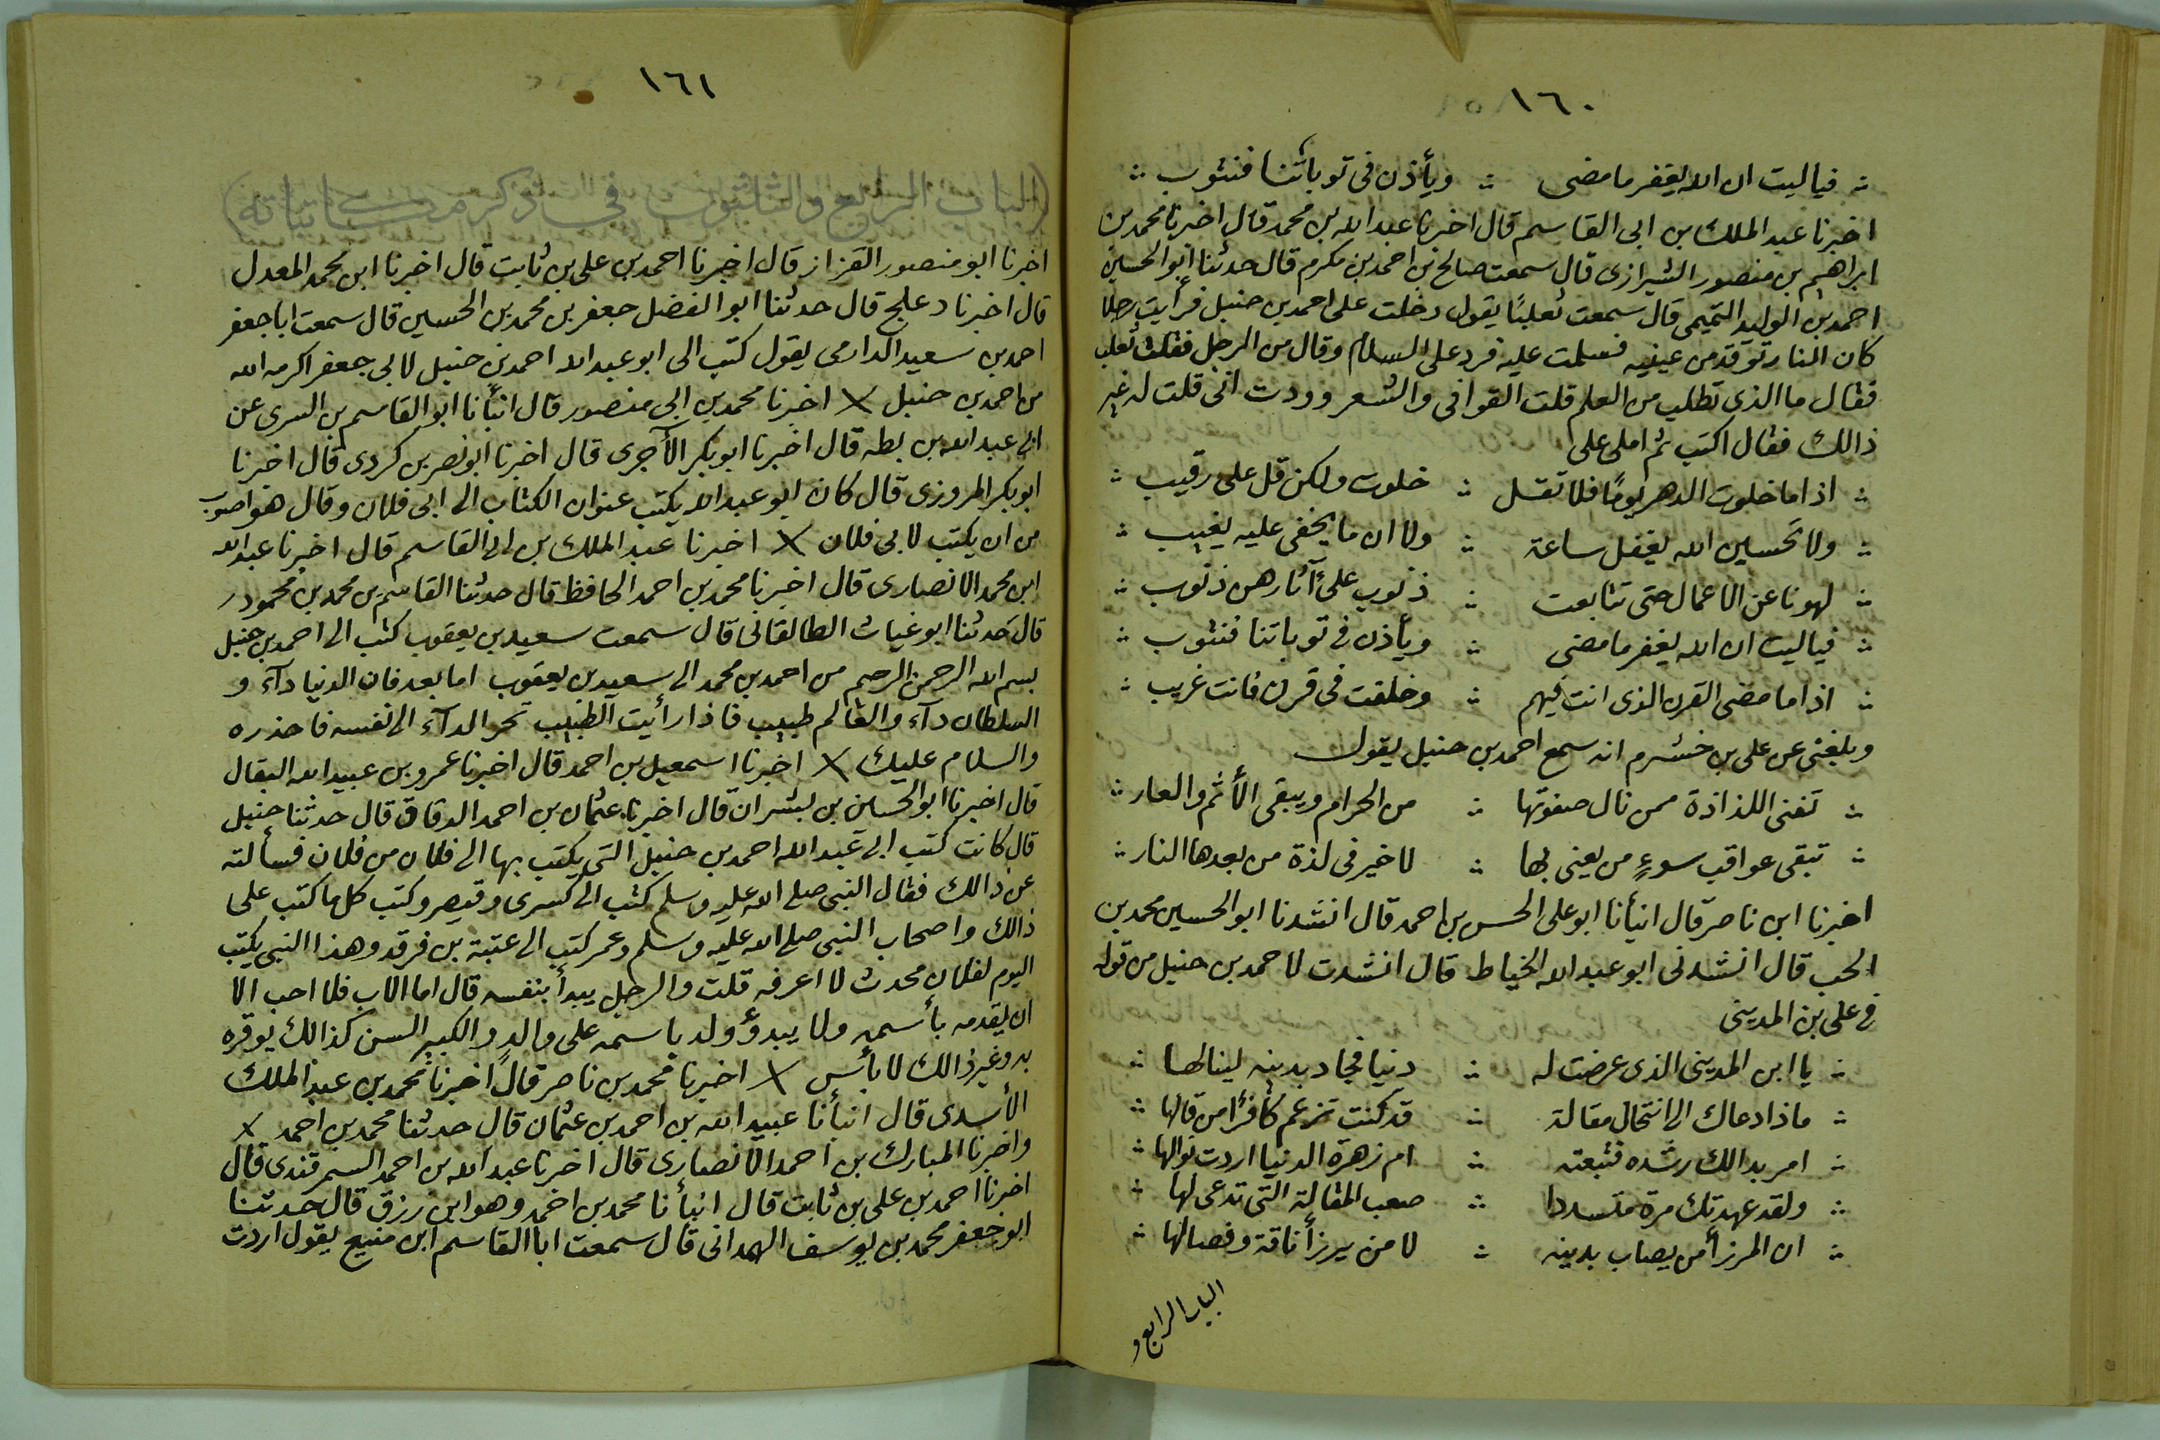 ١٦٠
فياليت ان الله يغفر ما مضى ؞ ويأذن فى توباتنا فنتوب
اخبرنا عبد الملك بن ابى القاسم قال اخبرنا عبد الله بن محمد قال اخبرنا محمد بن
ابراهيم بن منصور الشيرازى قال سمعت صالح بن احمد بن مكرم قال حدثنا ابو الحسين
احمد بن الوليد التميمى قال سمعت ثعلبًا يقول دخلت على احمد بن حنبل فرأيت رجلا
كان النار توقد من عينيه فسلمت عليه فرد على السلام وقال من الرجل فقلت ثعلب
فقال ما الذى تطلب من العلم قلت القوافى والشعر ووددت انى قلت له غير
ذالك فقال اكتب ثم املى على
اذا ما خلوت الدهر يومًا فلا تقل ؞ خلوت ولكن قل على رقيب
ولا تحسبن الله يغفل ساعة ؞ ولا ان ما يخفى عليه يغيب
لهونا عن الاعمال حتى تتابعت ؞ ذنوب على آثارهن ذنوب
فياليت ان الله يغفر ما مضى ؞ ويأذن فى توباتنا فنتوب
اذا ما مضى القرن الذى انت فيهم ؞ وخلفت فى قرن فانت غريب
وبلغنى عن على بن خشرم انه سمع احمد بن حنبل يقول
تفنى اللذاذة ممن نال صفوتها ؞ من الحرام ويبقى الأثم والعار
تبقى عواقب سوءٍ من يعنى بها ؞ لا خير فى لذة من بعدها النار
اخبرنا ابن ناصر قال انبأنا ابو على الحسن بن احمد قال انشدنا ابو الحسين محمد بن
الحب قال انشدنى ابو عبد الله الخياط قال انشدت لاحمد بن حنبل من قوله
فى على بن المدينى
يا ابن المدينى الذى عرضت له ؞ دنيا فجاد بدينه لينالها
ماذا دعاك الى انتحال مقالة ؞ قد كنت تزعم كافرًا من قالها
امر بدالك رشده فتبعته ؞ ام زهرة الدنيا اردت نوالها
ولقد عهدتك مرة متسددا ؞ صعب المقالة التى تدعى لها
ان المرزأ من يصاب بدينه ؞ لا من يرزأ ناقة وفصالها
الباب الرابع و
١٦١
(الباب الرابع والثلثون فى ذكر مكاتباته)
اخبرنا ابو منصور القزاز قال اخبرنا احمد بن على بن ثابت قال اخبرنا ابن محمد المعدل
قال اخبرنا دعلج قال حدثنا ابو الفضل جعفر بن محمد بن الحسين قال سمعت ابا جعفر
احمد بن سعيد الدارمى يقول كتب الى ابو عبد الله احمد بن حنبل لابى جعفر اكرمه الله
من احمد بن حنبل × اخبرنا محمد بن ابى منصور قال انبأنا ابو القاسم بن السرى عن
ابى عبد الله بن بطه قال اخبرنا ابو بكر الآجرى قال اخبرنا ابو نصر بن كردى قال اخبرنا
ابو بكر المروزى قال كان ابو عبد الله يكتب عنوان الكتاب الى ابى فلان وقال هو اصوب
من ان يكتب لابى فلان × اخبرنا عبد الملك بن ابى القاسم قال اخبرنا عبد الله
ابن محمد الانصارى قال اخبرنا محمد بن احمد الحافظ قال حدثنا القاسم بن محمد بن محمود
قال حدثنا ابو غياث الطالقانى قال سمعت سعيد بن يعقوب كتب الى احمد بن حنبل
بسم الله الرحمن الرحيم من احمد بن محمد الى سعيد بن يعقوب اما بعد فان الدنيا دآء و
السلطان دآء والعالم طبيب فاذا رأيت الطبيب تجر الدآء الى نفسه فاحذره
والسلام عليك × اخبرنا اسمعيل بن احمد قال اخبرنا عمرو بن عبيد الله البقال
قال اخبرنا ابو الحسين بن بشران قال اخبرنا عثمان بن احمد الدقاق قال حدثنا حنبل
قال كانت كتب ابى عبد الله احمد بن حنبل التى يكتب بها الى فلان من فلان فسألته
عن ذالك فقال النبى صلى الله عليه وسلم كتب الى كسرى وقيصر وكتب كلما كتب على
ذالك واصحاب النبى صلى الله عليه وسلم وعمر كتب الى عتبة بن فرقد وهذا النبى يكتب
اليوم لفلان محدث لا اعرفه قلت والرجل يبدأ بنفسه قال اما الاب فلا احب الا
ان يقدمه بأسمه ولا يبدؤ ولد باسمه على والدٍ والكبير السن كذالك يوقره
به وغير ذالك لا بأس × اخبرنا محمد بن ناصر قال اخبرنا محمد بن عبد الملك
الأسدى قال انبأنا عبيد الله بن احمد بن عثمان قال حدثنا محمد بن احمد ×
واخبرنا المبارك بن احمد الانصارى قال اخبرنا عبد الله بن احمد السمرقندى قال
اخبرنا احمد بن على بن ثابت قال انبأنا محمد بن احمد وهو ابن رزق قال حدثنا
ابو جعفر محمد بن يوسف الهمدانى قال سمعت ابا القاسم ابن منيع يقول اردت